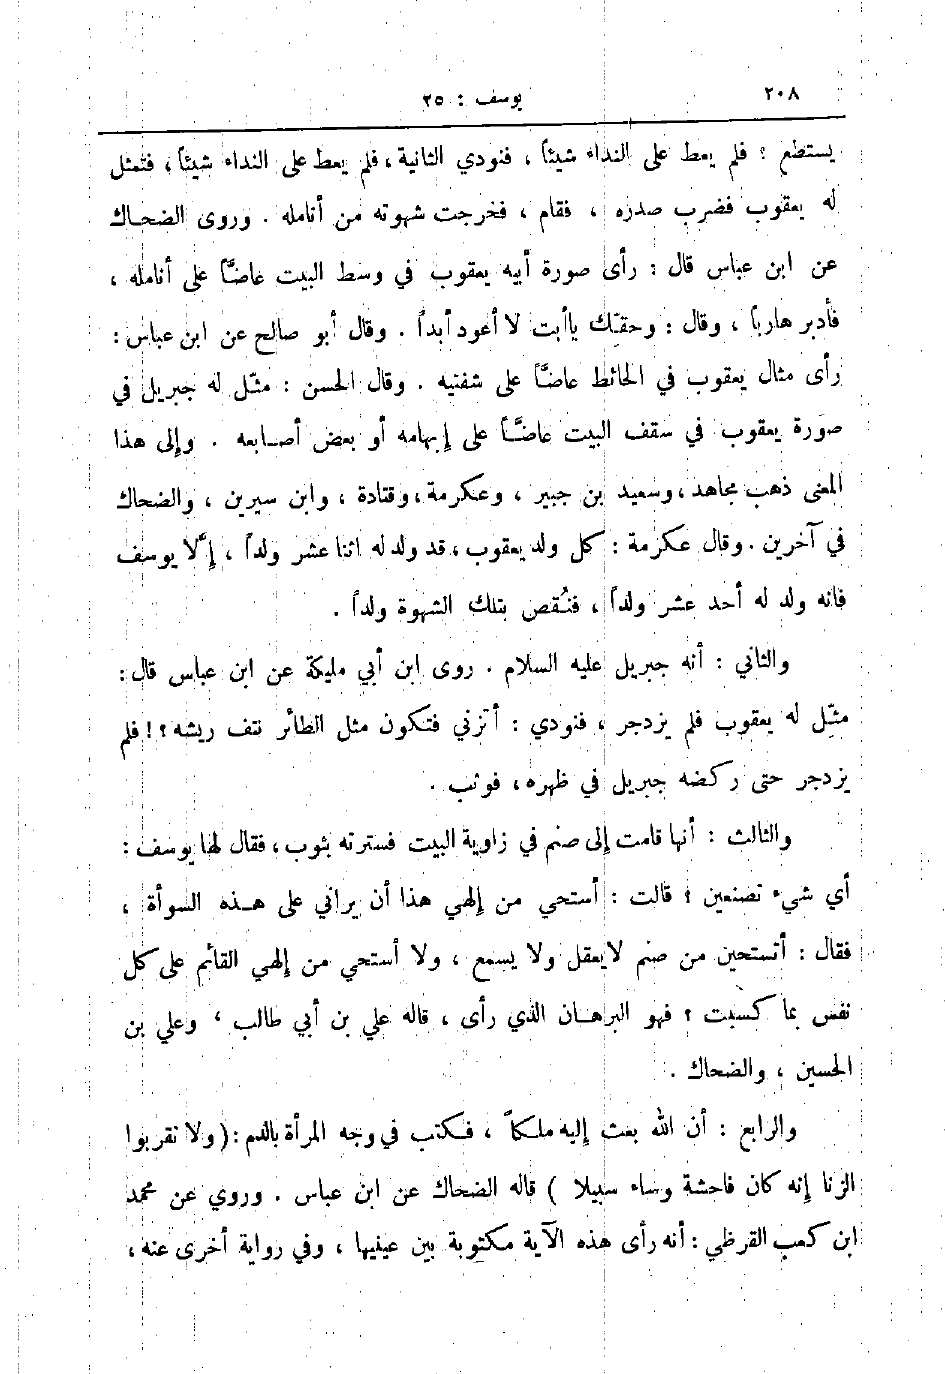 ٢٠٨ يوسف : ٢٥
يستطع ؛ فلم يعط على النداء شيئاً ، فنودي الثانية ، فلم يعط على النداء شيئاً ، فتمثل
له يعقوب فضرب صدره ، فقام ، فخرجت شهوته من أنامله . وروى الضحاك
عن ابن عباس قال : رأى صورة أبيه يعقوب في وسط البيت عاضّاً على أنامله ،
فأدبر هارباً ، وقال : وحقّك ياأبت لا أعود أبداً . وقال أبو صالح عن ابن عباس :
رأى مثال يعقوب في الحائط عاضّاً على شفتيه . وقال الحسن : مثّل له جبريل في
صورة يعقوب في سقف البيت عاضّاً على إبهامه أو بعض أصابعه . وإلى هذا
المعنى ذهب مجاهد ، وسعيد بن جبير ، وعكرمة ، وقتادة ، وابن سيرين ، والضحاك
في آخرين . وقال عكرمة : كل ولد يعقوب ، قد ولد له اثنا عشر ولداً ، إلّا يوسف
فانه ولد له أحد عشر ولداً ، فنُقص بتلك الشهوة ولداً .
والثاني : أنه جبريل عليه السلام . روى ابن أبي مليكة عن ابن عباس قال :
مثّل له يعقوب فلم يزدجر ، فنودي : أتزني فتكون مثل الطائر نتف ريشه ؟ ! فلم
يزدجر حتى ركضه جبريل في ظهره ، فوثب .
والثالث : أنها قامت إلى صنم في زاوية البيت فسترته بثوب ، فقال لها يوسف :
أي شيء تصنعين ؟ قالت : أستحي من إلهي هذا أن يراني على هذه السوأة ،
فقال : أتستحين من صنم لايعقل ولا يسمع ، ولا أستحي من إلهي القائم على كل
نفس بما كسبت ؟ فهو البرهان الذي رأى ، قاله علي بن أبي طالب ، وعلي بن
الحسين ، والضحاك .
والرابع : أن الله بعث إليه ملكاً ، فكتب في وجه المرأة بالدم : ( ولا تقربوا
الزنا إنه كان فاحشة وساء سبيلا ) قاله الضحاك عن ابن عباس . وروي عن محمد
ابن كعب القرظي : أنه رأى هذه الآية مكتوبة بين عينيها ، وفي رواية أخرى عنه ،